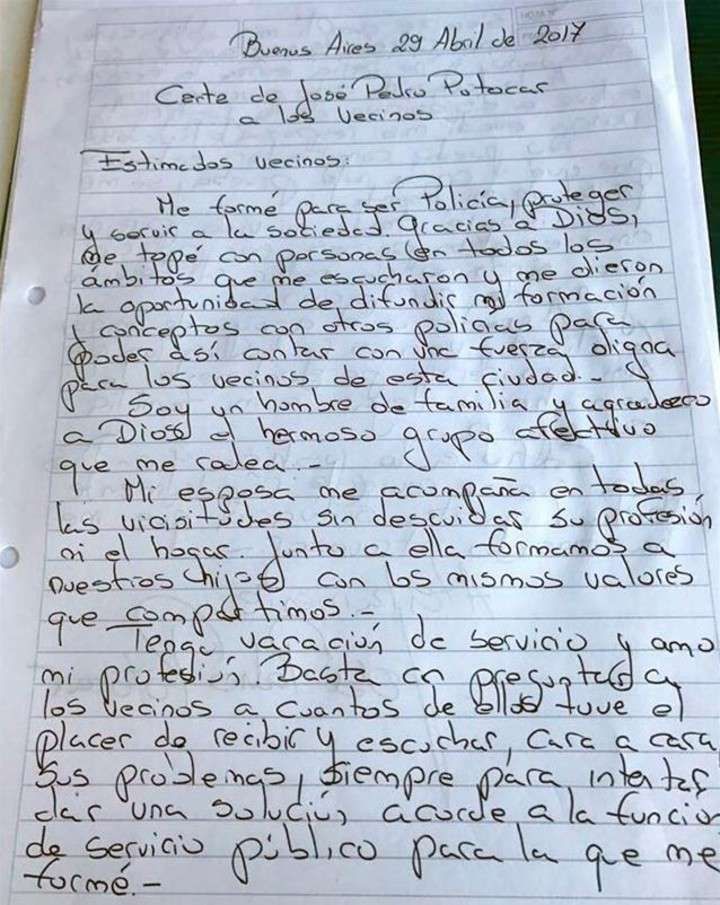 Buenos Aires 29 Abril de 2017
Carta de José Pedro Potocar
a los vecinos
Estimados vecinos:
Me formé para ser Policía, proteger
y servir a la sociedad. Gracias a Dios,
me topé con personas en todos los
ámbitos que me escucharon y me dieron
la oportunidad de difundir mi formación
y conceptos con otros policias para
poder así contar con una fuerza digna
para los vecinos de esta ciudad.-
Soy un hombre de familia y agradezco
a Dios el hermoso grupo afectivo
que me rodea.-
Mi esposa me acompaña en todas
las vicisitudes sin descuidar su profesión
ni el hogar. Junto a ella formamos a
nuestros hijos con los mismos valores
que compartimos.-
Tengo vocación de servicio y amo
mi profesión. Basta con preguntar a
los vecinos a cuantos de ellos tuve el
placer de recibir y escuchar, cara a cara
sus problemas, siempre para intentar
dar una solución acorde a la función
de servicio público para la que me
formé.-